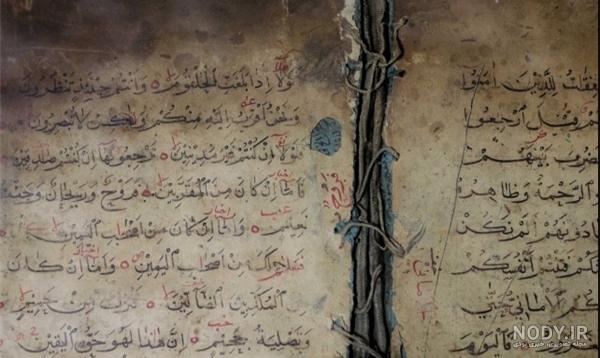 فقات للذين امنوا
كم قيل ارجعوا
فضرب بينهم
الرحمة وظاهره
ينادونهم الم نكن
كم فتنتم انفسكم
كم الاماني حتى
فاليوم
فلولا اذا بلغت الحلقوم وانتم حينئذ تنظرون
ونحن اقرب اليه منكم ولكن لا تبصرون
فلولا ان كنتم غير مدينين ترجعونها ان كنتم صادقين
فاما ان كان من المقربين فروح وريحان وجنت
نعيم واما ان كان من اصحاب اليمين
فسلام لك من اصحاب اليمين واما ان كان
المكذبين الضالين فنزل من حميم
وتصلية جحيم ان هذا لهو حق اليقين
NODY.IR